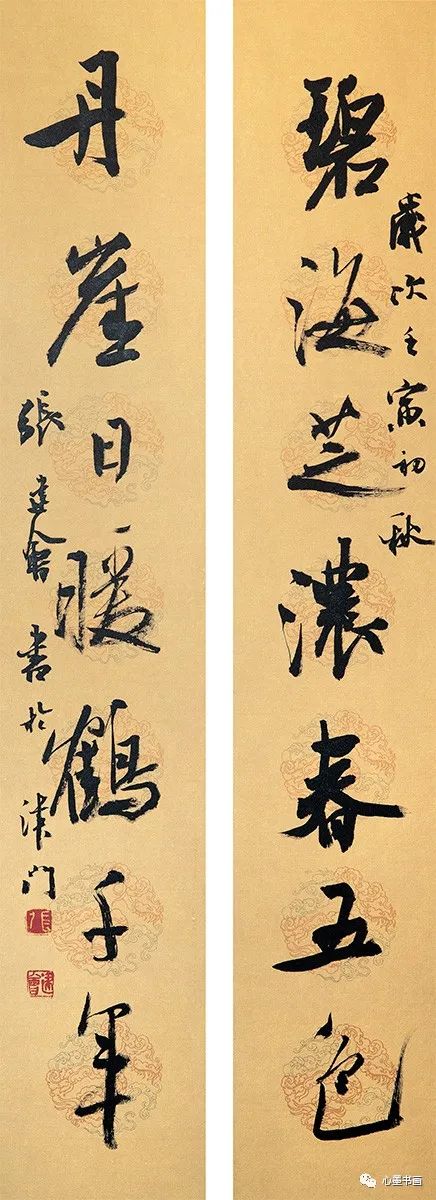 碧海芝濃春五色
歲次壬寅初秋
丹崖日暖鶴千年
張建會書於津門
心墨书画